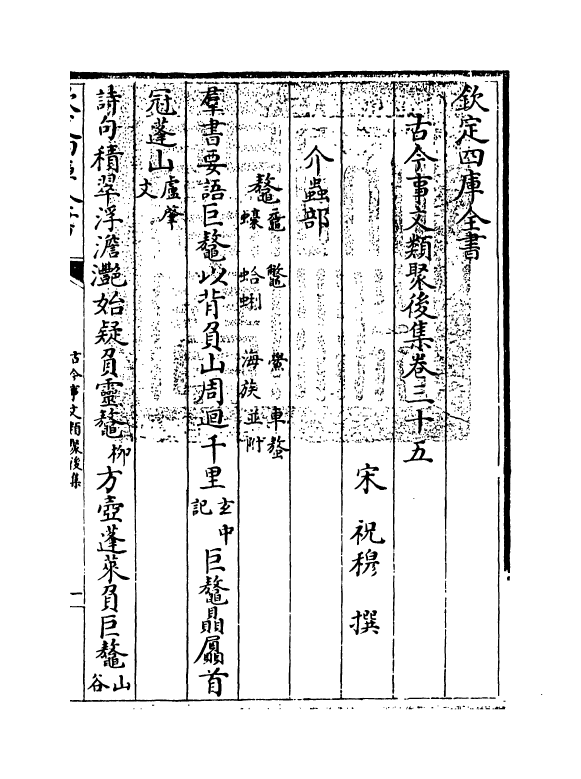 欽定四庫全書
古今事文類聚後集卷三十五
宋 祝穆 撰
介蟲部
鼇 黿 鼈 鱟 車螯 蠔 蛤蜊 海族並附
羣書要語巨鼇以背負山周迴千里玄中記巨鼇贔屭首
冠蓬山盧肇文
詩句積翠浮澹灔始疑負靈鼇柳方壺蓬萊負巨鼇山谷
古今事文類聚後集
一